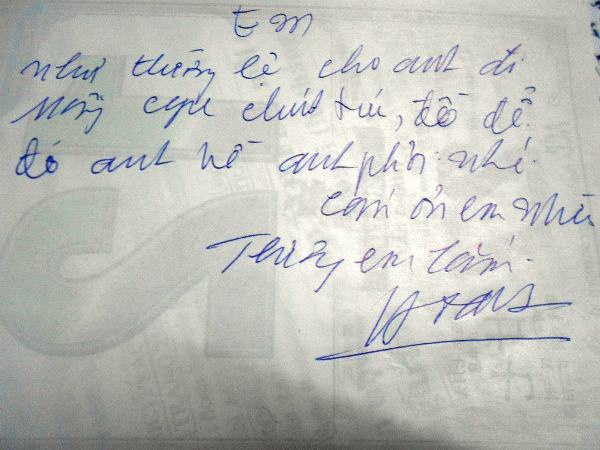 Em
như thường lệ cho anh đi
chút xíu, đồ để
đó anh về anh phơi nhé.
cám ơn em nhiều
Thương em lắm.